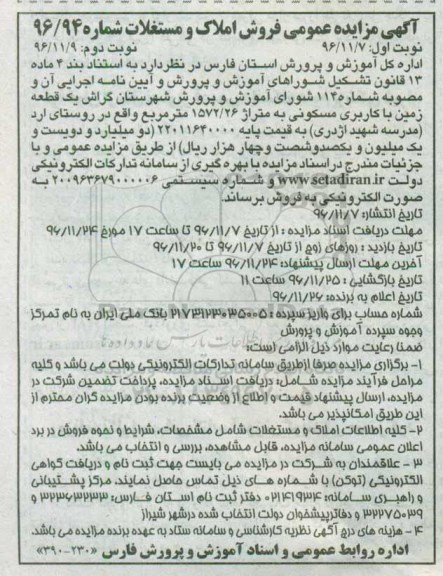 آگهی مزایده عمومی فروش املاک و مستغلات شماره ۹۶/۹۴
نوبت اول: ۹۶/۱۱/۷ نوبت دوم: ۹۶/۱۱/۹
اداره کل آموزش و پرورش استان فارس در نظر دارد به استناد بند ۴ ماده
۱۳ قانون تشکیل شوراهای آموزش و پرورش و آیین نامه اجرایی آن و
مصوبه شماره ۱۱۴ شورای آموزش و پرورش شهرستان گراش یک قطعه
زمین با کاربری مسکونی به متراژ ۱۵۷۲/۲۶ مترمربع واقع در روستای ارد
(مدرسه شهید اژدری) به قیمت پایه ۲۲۰۱۱۶۴۰۰۰۰ (دو میلیارد و دویست و
یک میلیون و یکصدوشصت وچهار هزار ریال) از طریق مزایده عمومی و با
جزئیات مندرج در اسناد مزایده با بهره گیری از سامانه تدارکات الکترونیکی
دولت www.setadiran.ir و شماره سیستمی ۲۰۰۹۶۳۶۷۹۰۰۰۰۰۶ به
صورت الکترونیکی به فروش برساند.
تاریخ انتشار: ۹۶/۱۱/۷
مهلت دریافت اسناد مزایده : از تاریخ ۹۶/۱۱/۷ تا ساعت ۱۷ مورخ ۹۶/۱۱/۲۴
تاریخ بازدید : روزهای زوج از تاریخ ۹۶/۱۱/۷ تا ۹۶/۱۱/۲۰
آخرین مهلت ارسال پیشنهاد: ۹۶/۱۱/۲۴ ساعت ۱۷
تاریخ بازگشایی : ۹۶/۱۱/۲۵ ساعت ۱۱
تاریخ اعلام به برنده: ۹۶/۱۱/۲۶
شماره حساب برای واریز سپرده : ۲۱۷۳۱۲۳۰۳۵۰۰۵ بانک ملی ایران به نام تمرکز
وجوه سپرده آموزش و پرورش
ضمنا رعایت موارد ذیل الزامی است:
۱- برگزاری مزایده صرفا از طریق سامانه تدارکات الکترونیکی دولت می باشد و کلیه
مراحل فرآیند مزایده شامل: دریافت اسناد مزایده، پرداخت تضمین شرکت در
مزایده، ارسال پیشنهاد قیمت و اطلاع از وضعیت برنده بودن مزایده گران محترم از
این طریق امکانپذیر می باشد.
۲- کلیه اطلاعات املاک و مستغلات شامل مشخصات، شرایط و نحوه فروش در برد
اعلان عمومی سامانه مزایده، قابل مشاهده، بررسی و انتخاب می باشد.
۳ - علاقمندان به شرکت در مزایده می بایست جهت ثبت نام و دریافت گواهی
الکترونیکی (توکن) با شماره های ذیل تماس حاصل نمایند. مرکز پشتیبانی
و راهبری سامانه: ۰۲۱۴۱۹۳۴ دفتر ثبت نام استان فارس: ۳۲۳۶۳۲۳۳ و
۳۲۲۷۵۰۳۹ و دفاتر پیشخوان دولت انتخاب شده در شهر شیراز
۴- هزینه های درج آگهی نظریه کارشناسی و سامانه ستاد به عهده برنده مزایده می باشد.
اداره روابط عمومی و اسناد آموزش و پرورش فارس «۳۹۰-۲۳۰»